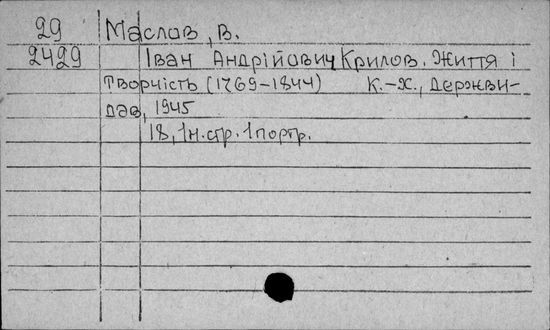 29 Маслов, В.
2429 Іван Андрійович Крилов. Життя і
творчість (1769-1844) К.-Х., Держви-
дав, 1945
18, 1н.стр. 1портр.